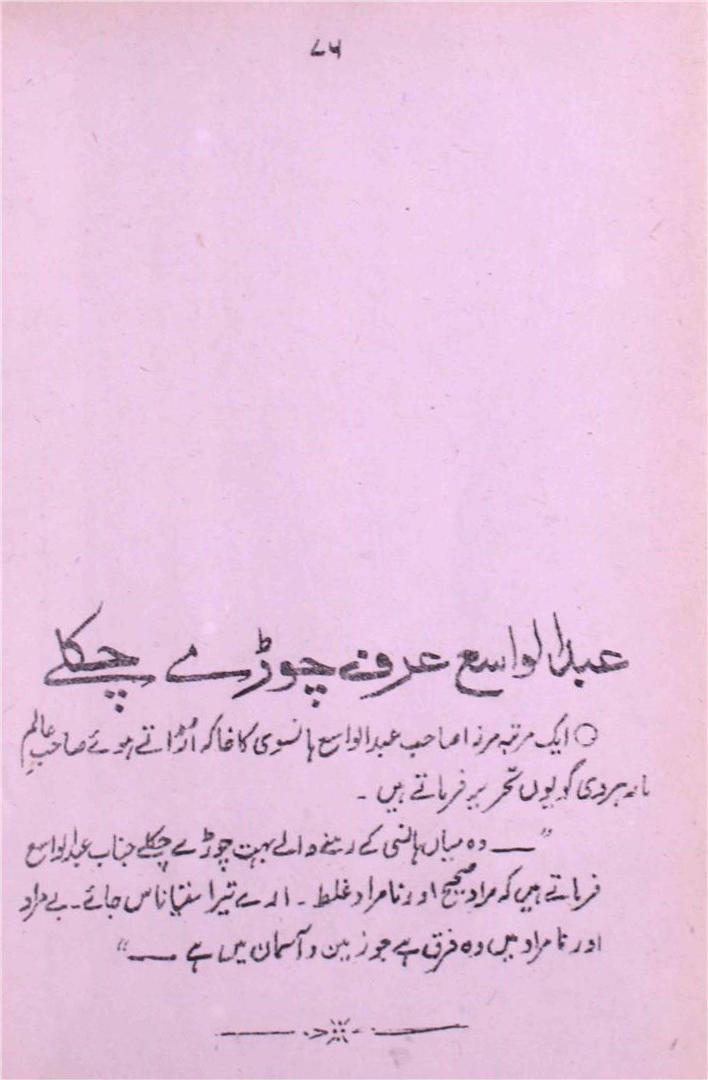 ۷۵
عبدالواسع عرف چوڑے چکلے
○ ایک مرتبہ مرزا صاحب عبدالواسع ہانسوی کا خاکہ اُڑاتے ہوئے صاحبِ عالم
مارہروی کو یوں تحریر فرماتے ہیں ۔
"— وہ میاں ہانسی کے رہنے والے بہت چوڑے چکلے جناب عبدالواسع
فرماتے ہیں کہ مراد صحیح اور نامراد غلط ۔ ارے تیرا ستیاناس جائے ۔ بے مراد
اور نامراد میں وہ فرق ہے جو زمین و آسمان میں ہے —"